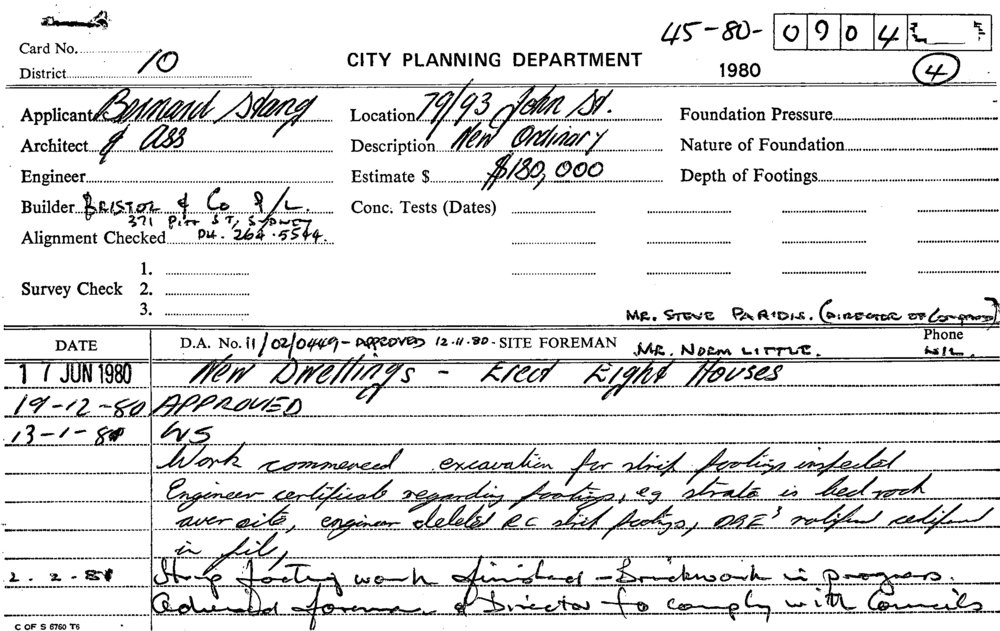 45-80- 0904
Card No.
District 10
CITY PLANNING DEPARTMENT
1980
4
Applicant Bernard Stang
Location 79/93 John St.
Foundation Pressure
Architect & Ass
Description New Ordinary
Nature of Foundation
Engineer
Estimate $ $180,000
Depth of Footings
Builder BRISTOR & Co P/L.
Conc. Tests (Dates)
371 PITT ST, SYDNEY
Alignment Checked PH. 264.5544.
1.
Survey Check 2.
3.
MR. STEVE PARIDIS. (DIRECTOR OF COMPANY)
DATE
D.A. No. 11/02/0449 - APPROVED 12.11.80 - SITE FOREMAN MR. NORM LITTLE.
Phone
17 JUN 1980 New Dwellings - Erect Eight Houses
19-12-80 APPROVED
13-1-81 WS
Work commenced excavation for strip footings inspected
Engineer certificate regarding footings, eg strata is bed rock
over site, engineer deleted RC strip footings, notified
in file,
2.2.81 Strip footing work finished - Brickwork in progress.
Advised foreman & Director to comply with Councils
C OF S 6760 T6